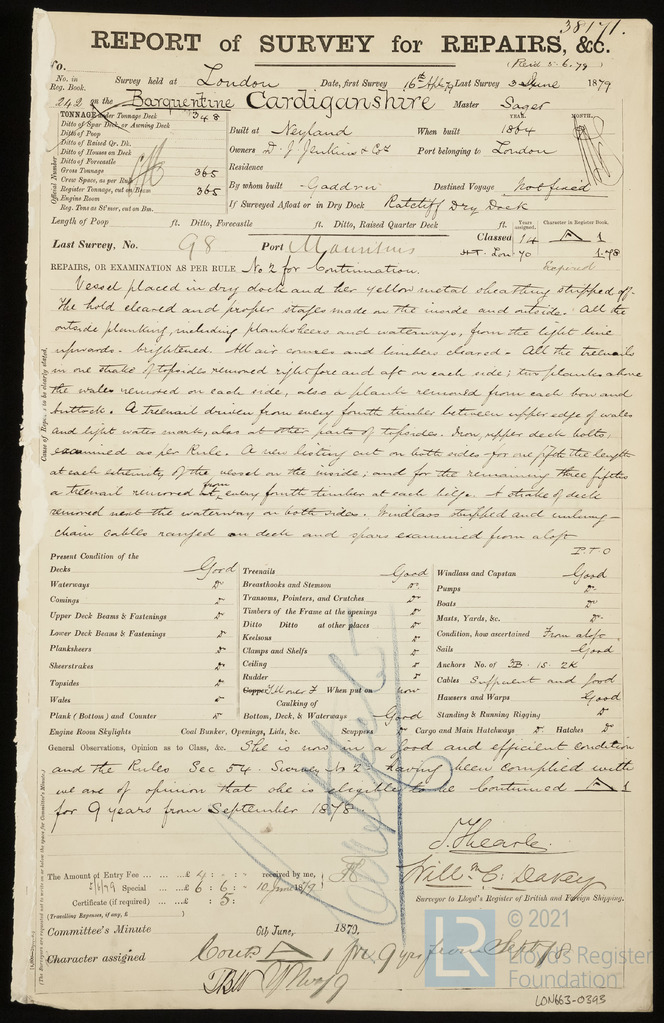 38171.
REPORT of SURVEY for REPAIRS, &c.
(Recd 5.6.79)
No.
No. in Reg. Book. Survey held at London Date, first Survey 16th Last Survey 3 June 1879
242 on the Barquentine Cardiganshire Master Sager
TONNAGE under Tonnage Deck 348
Ditto of Spar Deck or Awning Deck
Ditto of Poop
Ditto of Raised Qr. Dk.
Ditto of Houses on Deck
Ditto of Forecastle
Gross Tonnage 365
Crew Space, as per Rule
Register Tonnage, cut on Beam 365
Engine Room
Reg. Tons as St'mer, cut on Bm.
Official Number
YEAR. MONTH.
Built at Neyland When built 1864
Owners D. J. Jenkins & Co. Port belonging to London
Residence
By whom built Destined Voyage Not fixed
If Surveyed Afloat or in Dry Dock Ratcliff Dry Dock
Length of Poop ft. Ditto, Forecastle ft. Ditto, Raised Quarter Deck ft.
Years assigned. Character in Register Book.
Last Survey, No. 98 Port Mauritius Classed 14 A 1
Lon. 70 1.78
Expired
REPAIRS, OR EXAMINATION AS PER RULE No 2 for Continuation.
Vessel placed in dry dock and her yellow metal sheathing stripped off.
The hold cleared and proper stages made on the inside and outside. All the
outside planking, including planksheers and waterways, from the light line
upwards brightened. All air courses and limbers cleared. All the treenails
in one strake of topsides removed right fore and aft on each side; two planks above
the wales removed on each side, also a plank removed from each bow and
buttock. A treenail driven from every fourth timber between upper edge of wales
and light water mark, also at other parts of topsides. Iron upper deck bolts,
examined as per Rule. A new listing cut on both sides for one fifth the length
at each extremity of the vessel on the inside; and for the remaining three fifths
a treenail removed from every fourth timber at each bilge. A strake of deck
removed next the waterway on both sides. Windlass stripped and unhung
chain cables ranged on deck and spars examined from aloft
P.T.O
Cause of Repairs to be clearly stated.
Present Condition of the
Decks Good
Waterways Do
Comings Do
Upper Deck Beams & Fastenings Do
Lower Deck Beams & Fastenings Do
Planksheers Do
Sheerstrakes Do
Topsides Do
Wales Do
Plank (Bottom) and Counter Do
Treenails Good
Breasthooks and Stemson Do
Transoms, Pointers, and Crutches Do
Timbers of the Frame at the openings Do
Ditto Ditto at other places Do
Keelsons Do
Clamps and Shelfs Do
Ceiling Do
Rudder Do
Copper When put on now
Caulking of
Bottom, Deck, & Waterways Good
Windlass and Capstan Good
Pumps Do
Boats Do
Masts, Yards, &c. Do
Condition, how ascertained From aloft
Sails Good
Anchors No. of 3B. 1S. 2K
Cables Sufficient and good
Hawsers and Warps Good
Standing & Running Rigging Do
Engine Room Skylights Coal Bunker, Openings, Lids, &c. Scuppers Do Cargo and Main Hatchways Do. Hatches Do
General Observations, Opinion as to Class, &c. She is now in a good and efficient condition
and the Rules Sec 54. Survey No 2 having been complied with
we are of opinion that she is eligible to be Continued A 1
for 9 years from September 1878
Will. C. Davey
Surveyor to Lloyd's Register of British and Foreign Shipping.
The Amount of Entry Fee ... £ 4 : - : - received by me,
5/6/79 Special ... £ 6 : 6 : - 10 June 1879
Certificate (if required) ... £ : 5 :
(Travelling Expenses, if any, £ )
Committee's Minute 6th June, 1879.
Character assigned Cont A 1 for 9 yrs from Sept 78
LR © 2021
Lloyd's Register
Foundation
LON663-0393